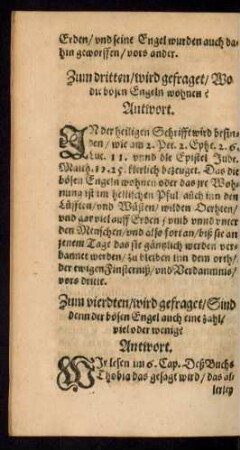 Erden/ vnd seine Engel wurden auch da-
hin geworffen/ vors ander.
Zum dritten/ wird gefraget/ Wo
die bösen Engeln wohnen?
Antwort.
IN der heiligen Schrifft wird befun-
den/ wie am 2. Pet. 2. Eph. 2. 6.
Luc. 11. vnnd die Epistel Jude.
Matth. 12. 25. klerlich bezeuget. Das die
bösen Engeln wohnen oder das jre Woh-
nung ist im hellischen Pful/ auch inn den
Lüfften/ vnd Wüsten/ wilden Oerhten/
vnd gar viel auff Erden/ vmb vnnd vnter
den Menschen/ vnd also fort an/ biß sie an
jenem Tage das sie gäntzlich werden ver-
bannet werden/ zu bleiben inn dem orth/
der ewigen Finsternuß/ vnd Verdamnis/
vors dritte.
Zum vierdten/ wird gefraget/ Sind
denn der bösen Engel auch eine zahl/
viel oder wenig?
Antwort.
WIr lesen im 6. Cap. Deß Buchs
Thobia das gesagt wird/ das al-
lerley